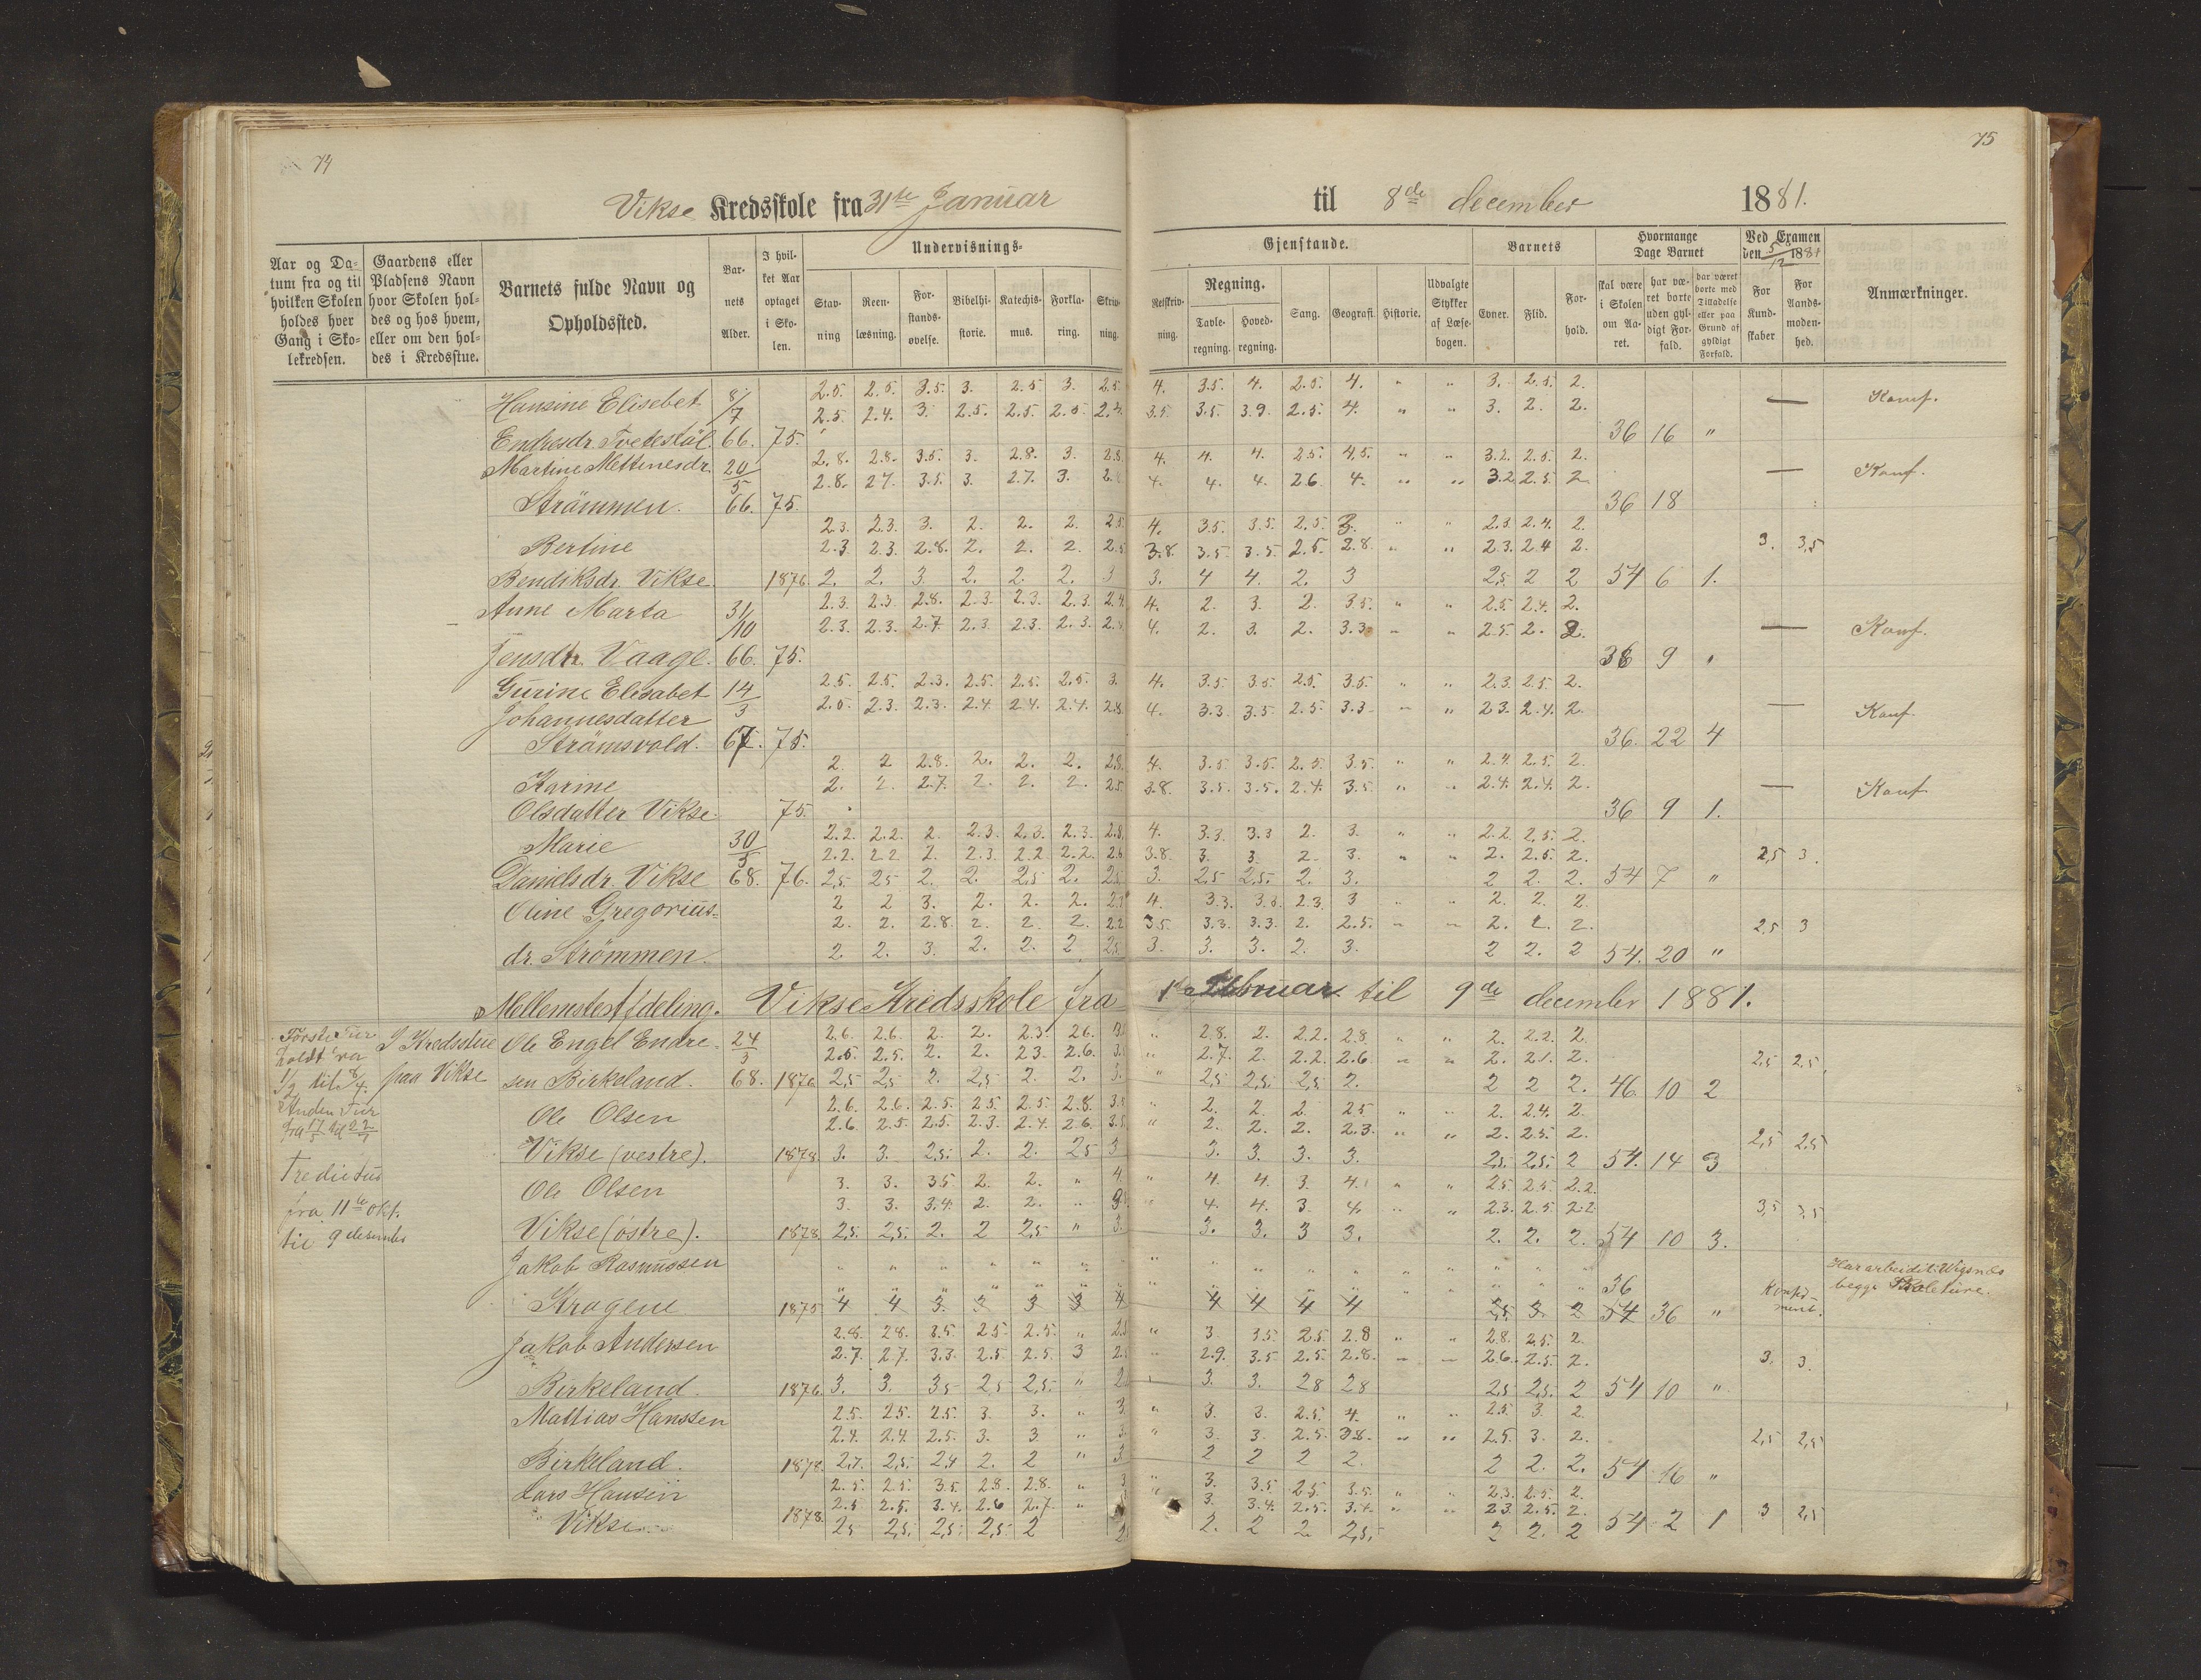 74
75
Vikse Kredsskole fra 31te Januar til 8de december 1881.
Aar og Datum fra og til hvilken Skolen holdes hver Gang i Skolekredsen.
Gaardens eller Pladsens Navn hvor Skolen holdes og hos hvem, eller om den holdes i Kredsstue.
Barnets fulde Navn og Opholdssted.
Barnets Alder.
I hvilket Aar optaget i Skolen.
Undervisnings-
Gjenstande.
Stavning
Reenlæsning.
Forstandsøvelse.
Bibelhistorie.
Katechismus.
Forklaring.
Skrivning.
Retskrivning.
Regning.
Tavleregning.
Hovedregning.
Sang.
Geografi.
Historie.
Udvalgte Stykker af Læsebogen.
Barnets
Evner.
Flid.
Forhold.
Hvormange Dage Barnet
skal være i Skolen om Aaret.
har været borte uden gyldigt Forfald.
har været borte med Tilladelse eller paa Grund af gyldigt Forfald.
Ved Examen den 5/12 1881
For Kundskaber
For Aandsmodenhed.
Anmærkninger.
Hansine Elisebet 8/7 2.5. 2.5. 3.5. 3. 2.5 3. 2.5. 4. 3.5. 4. 2.5. 4. " " 3. 2.5. 2. — Konf.
2.5. 2.4. 3. 2.5. 2.5. 2.5. 2.4. 3.5. 3.5. 3.9. 2.5. 4. " " 3. 2. 2.
Endresdr. Tvetestøl. 66. 75. 36 16 "
Martine Mettinesdr. 20/5 2.8. 2.8. 3.5. 3. 2.8. 3. 2.8. 4. 4. 4. 2.5. 4.5. " " 3.2. 2.5. 2. — Konf.
2.8. 2.7. 3.5. 3. 2.7. 3. 4. 4. 4. 2.6 4. " " 3.2 2.5. 2.
Strömmen. 66. 75. 36 18
2.3. 2.3. 3. 2. 2. 2. 2.5. 4. 3.5. 3.5. 2.5. 3. " " 2.3. 2.4. 2.
Bertine 2.3 2.3. 2.8. 2. 2. 2. 2.5 3.8. 3.5. 3.5. 2.5. 2.8. " " 2.3. 2.4 2. 3. 3,5
Bendiksdr. Vikse. 1876 2. 2. 3. 2. 2. 2. 3 3. 4 4. 2. 3 2,5 2 2 54 6 1.
Anne Marta 31/10 2.3. 2.3. 2.8. 2.3. 2.3. 2.3. 2.4. 4. 2. 3. 2. 3.5. " " 2.5. 2.4. 2.
2.3. 2.3. 2.7. 2.3. 2.3. 2.3. 4. 2. 3. 2. 3.3 " " 2.5. 2. 2. — Konf.
Jensdtr. Vaage. 66. 75. 36 9 "
Gurine Elisabet 14/3 2.5. 2.5. 2.3. 2.5. 2.5. 2.5. 3. 4. 3.5. 3.5. 2.5. 3.5. " " 2.3. 2.5. 2.
Johannesdatter 2.5. 2.3. 2.3. 2.4. 2.4. 2.4. 2.8. 4. 3.3. 3.5. 2.5. 3.3 " " 2.3. 2.4. 2. — Konf.
Strömsvold. 67. 75. 36. 22 4
2. 2 2.8. 2. 2. 2. 2.8. 4. 3.5. 3.5. 2.5. 3.5. " " 2.4. 2.5. 2.
Karine 2. 2. 2.7. 2. 2. 2. 2.5 3.8. 3.5. 3.5. 2.4. 3.5. " " 2.4. 2.4. 2. — Konf.
Olsdatter Vikse. 75. 36 9 1.
Marie 30/5 2.2. 2.2. 2. 2.3. 2.3. 2.3. 2.8. 4. 3.3. 3.3 2. 3. " " 2.2. 2.5. 2.
2.2. 2.2 2. 2.3. 2.2. 2.2. 2.6 3.8. 3. 3. 2. 3. " " 2. 2.5. 2. 2,5 3.
Danielsdr. Vikse 68. 76. 2,5. 2,5 2. 2. 2,5 2. 2,5 3. 2,5 2,5. 2. 3. 2 2. 2. 54 7 "
Oline Gregorius- 2 2 3. 2. 2. 2. 4. 3.3. 3.3. 2.3. 3 " " 2. 2. 2.
2. 2. 2.8. 2. 2. 2. 2.2 3.5. 3.3. 3.3. 2. 2.5. " " 2. 2. 2. 2,5 3
dr. Strömmen. 2. 2. 3. 2. 2. 2. 2,5 3. 3. 3. 2. 3. 2 2. 2 54. 20 "
Mellemstes Afdeling. Vikse Kredsskole fra 1ste Februar til 9de december 1881.
Förste Tur holdt fra 1/2 til 8/4.
Anden Tur
Tredie tur fra 11te okt. til 9 desember
I Kredsstue paa Vikse
Ole Engel Endre- 24/3 2.6. 2.6. 2. 2. 2.3 2.6. " 2.8. 2. 2.2. 2.8. " " 2. 2.2. 2.
2.5. 2.5. 2. 2. 2.3. 2.6. 3. " 2.7. 2. 2.2. 2.6 " " 2. 2.1. 2. 2,5 2,5
sen Birkeland. 68. 1876 2,5 2,5 2. 2,5 2. 2. 3. " 2,5 2,5. 2,5 2. 2 2 2. 46 10 2
Ole Olsen 2.6. 2.6. 2.5. 2.5. 2.5. 2.8. 3.5 " 2. 2. 2. 2.5 " " 2. 2.4. 2.
2.6. 2.5 2.5. 2.3. 2.4. 2.6. 3.5 " 2. 2. 2. 2.3. " " 2. 2.5. 2. 2,5 2,5
Vikse (vestre). 1878 3. 3. 2,5. 2. 2. 2,5 3 3. 3. 3. 3. 2,5. 2,5. 2 54. 14 3
Ole Olsen 3. 3. 3.5 2. 2. " 4. " 4. 4. 3. 4. " " 2.5 2.5. 2.2.
3. 3. 3.4. 2. 2. " " 4. 4. 3 4. " " 2.3. 2.5 2.2. 3,5 3,5
Vikse (östre). 1878 2,5. 2,5. 2. 2 2,5 " 3. 3. 3. 3 3. 2. 2. 2. 54 10 3.
Jakob Rasmussen " " " " " " " " " " " " " " " " Har arbeidet i Vigsnes
" " " " " " " " " " " " " " 36 Konfirment. begge Skoleture.
Kragene 1875 4 4 3. 3 3 3 4 4 4 4 4 2,5 3. 2 54 36 "
Jakob Andersen 2.8. 2.8. 3.5. 2.5. 2.5. " 2.5 " 3. 3.5. 2.5. 2.8 " " 2.8. 2.5. 2.
2.7. 2.7. 3.3. 2.5. 2.5. 3 " 2.9. 3.5 2.5. 2.8. " " 2.6. 2.5. 2. 3. 3.
Birkeland. 1876. 3. 3. 3,5 2,5 2,5. " 3. 3. 2,8 2,8 2,5 2,5. 2 54 10 "
Mattias Hanssen 2.5. 2.5. 2.5. 3. 3. " 3. " 3. 3. 2.5. 4. " " 2.5. 3. 2.
2.4. 2.4. 2.5. 3. 3. " 3. " 3. 3. 2.5. 3.8. " " 2.5. 3. 2. 2,5 2,5
Birkeland. 1878. 2,7. 2,5. 2,4 2. 2 " 3. 2 2 2 2. 2 2. 2. 54 16 "
Lars Hansen 2.5. 2.5. 3.5. 2.8. 2.8. " 3 " 3. 3.5 2.5 3.5. " " 2.3. 2.5. 2.
2.5 2.5. 3.4. 2.6 2.7. " " 3. 3.4. 2.5. 3.4. " " 2.3. 2.5. 2.
Vikse 1878. 2,5 2,5. 2,5. 2,5 2 2. 2 2. 2,5. 2 2. 2 54 2 1 3 2,5